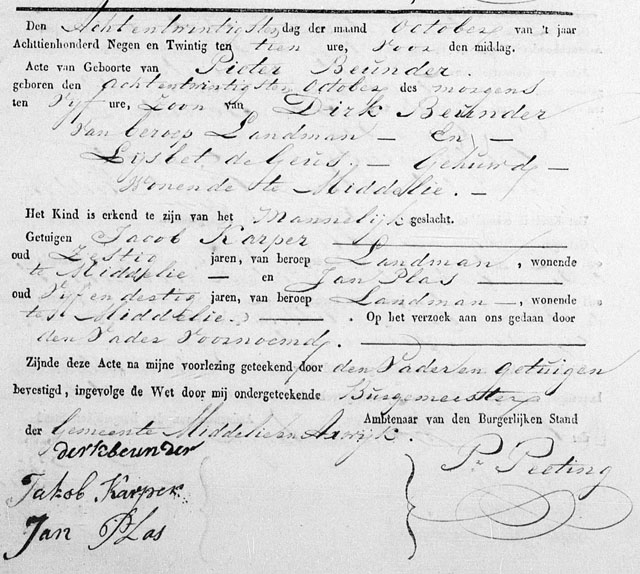 Den Achtentwintigsten dag der maand October van 't jaar
Achttienhonderd Negen en Twintig ten tien ure, voor den middag.
Acte van Geboorte van Pieter Beunder.
geboren den achtentwintigsten October des morgens
ten Vyf ure, Zoon van Dirk Beunder
van beroep Landman — En —
Lysbet de Geus, — Gehuwd —
Wonende te Middelie. —
Het Kind is erkend te zijn van het Mannelijk geslacht.
Getuigen Jacob Karper
oud Zestig jaren, van beroep Landman, wonende
te Middelie — en Jan Plas
oud Vyf en dertig jaren, van beroep Landman —, wonende
te Middelie. . Op het verzoek aan ons gedaan door
den Vader Voornoemd.
Zijnde deze Acte na mijne voorlezing geteekend door den Vader en getuigen
bevestigd, ingevolge de Wet door mij ondergeteekende Burgemeester
Ambtenaar van den Burgerlijken Stand
der Gemeente Middelie en Axwijk.
derk beunder
Pr Peeting
Jakob Karper
Jan Plas